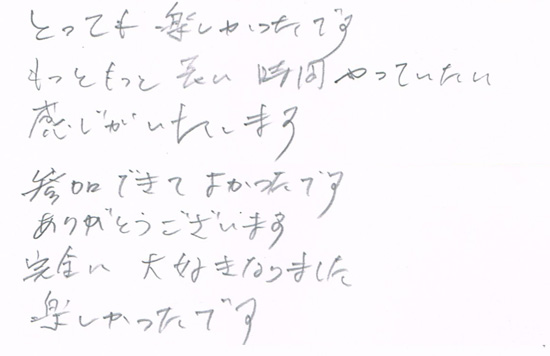 とっても 楽しかったです
もっともっと 長い 時間 やっていたい
感じがいたします
参加できて よかったです
ありがとうございます
完全に 大好きなりました
楽しかったです